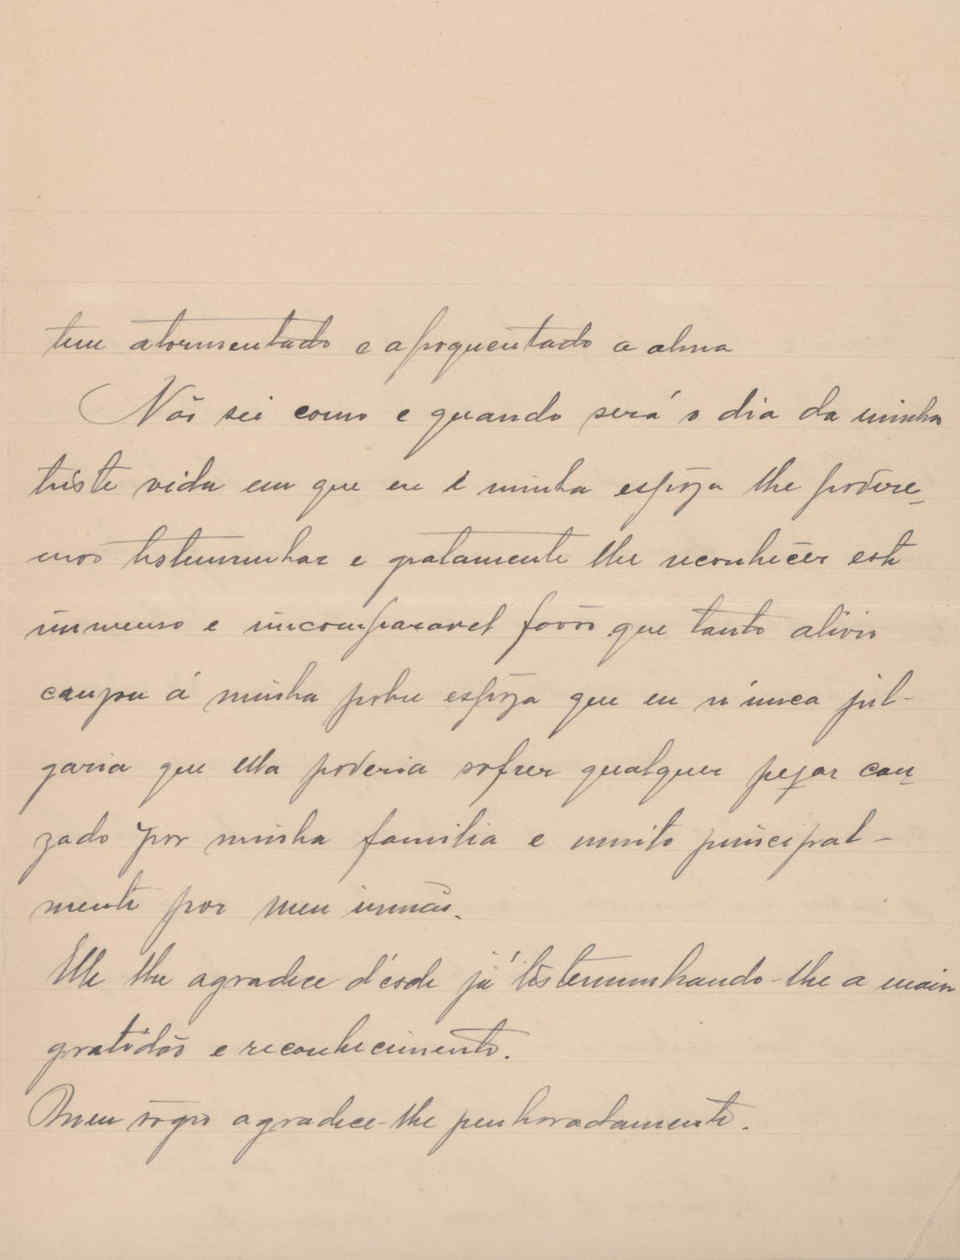 tem atormentado e apoquentado a alma
Não sei como e quando será o dia da minha
triste vida em que eu e minha espôza lhe podere-
mos testemunhar e gratamente lhe reconhecêr este
immenso e incomparavel favôr que tanto alivio
cauza á minha pobre espôza que eu núnca jul-
garia que ella poderia sofrer qualquer pezar cau-
zado por minha familia e muito principal-
mente por meu irmão.
Elle lhe agradece désde já testemunhando-lhe a maior
gratidão e reconhecimento.
Meu sôgro agradece-lhe penhoradamente.